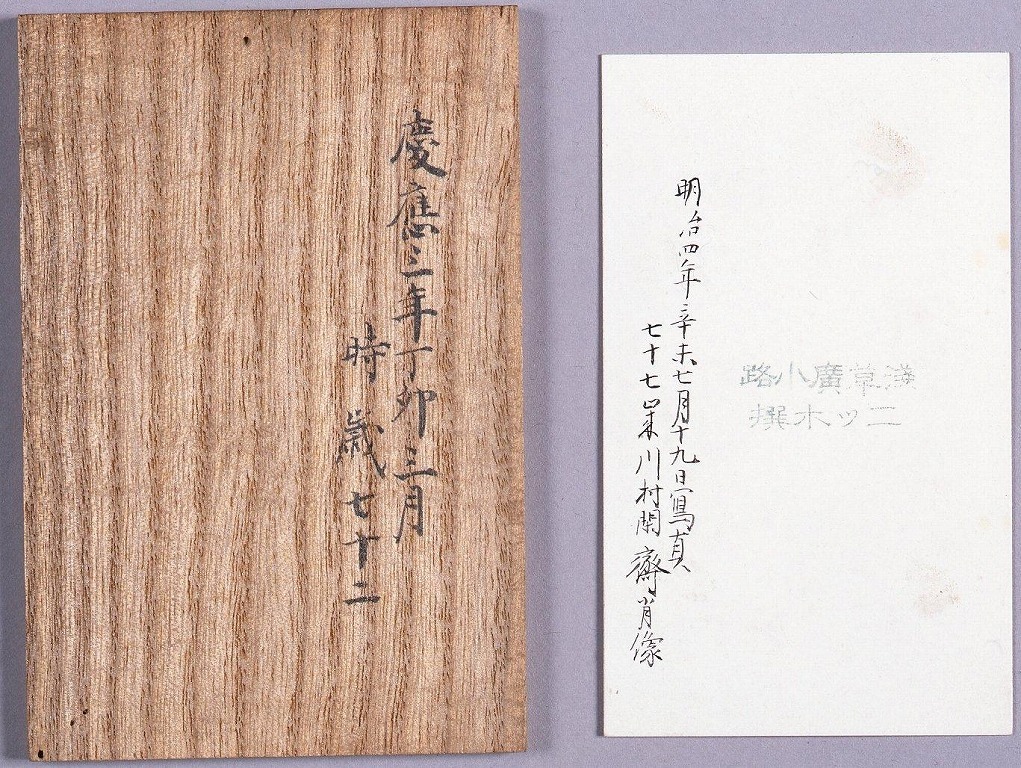 慶應三年丁卯三月
時歳七十二
淺草廣小路
二ツ木撰
明治四年辛未七月十九日寫真
七十七業川村閑齋肖像